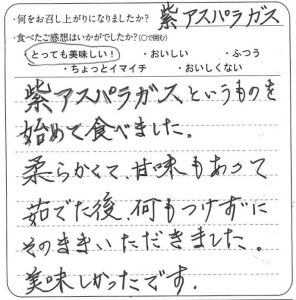 ・何をお召し上がりになりましたか？ 紫アスパラガス
・食べたご感想はいかがでしたか？（○で囲む）
・とっても美味しい！ ・おいしい ・ふつう
・ちょっとイマイチ ・おいしくない
紫アスパラガスというものを
始めて食べました。
柔らかくて、甘味もあって
茹でた後、何もつけずに
そのままいただきました。
美味しかったです.